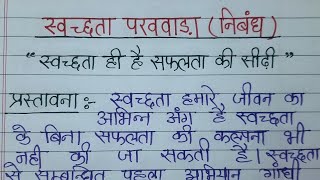 स्वच्छता पखवाड़ा (निबंध)
“ स्वच्छता ही है सफलता की सीढ़ी ”
प्रस्तावना :- स्वच्छता हमारे जीवन का
अभिन्न अंग है स्वच्छता
के बिना सफलता की कल्पना भी
नही की जा सकती है। स्वच्छता
से सम्बन्धित पहला अभियान गांधी